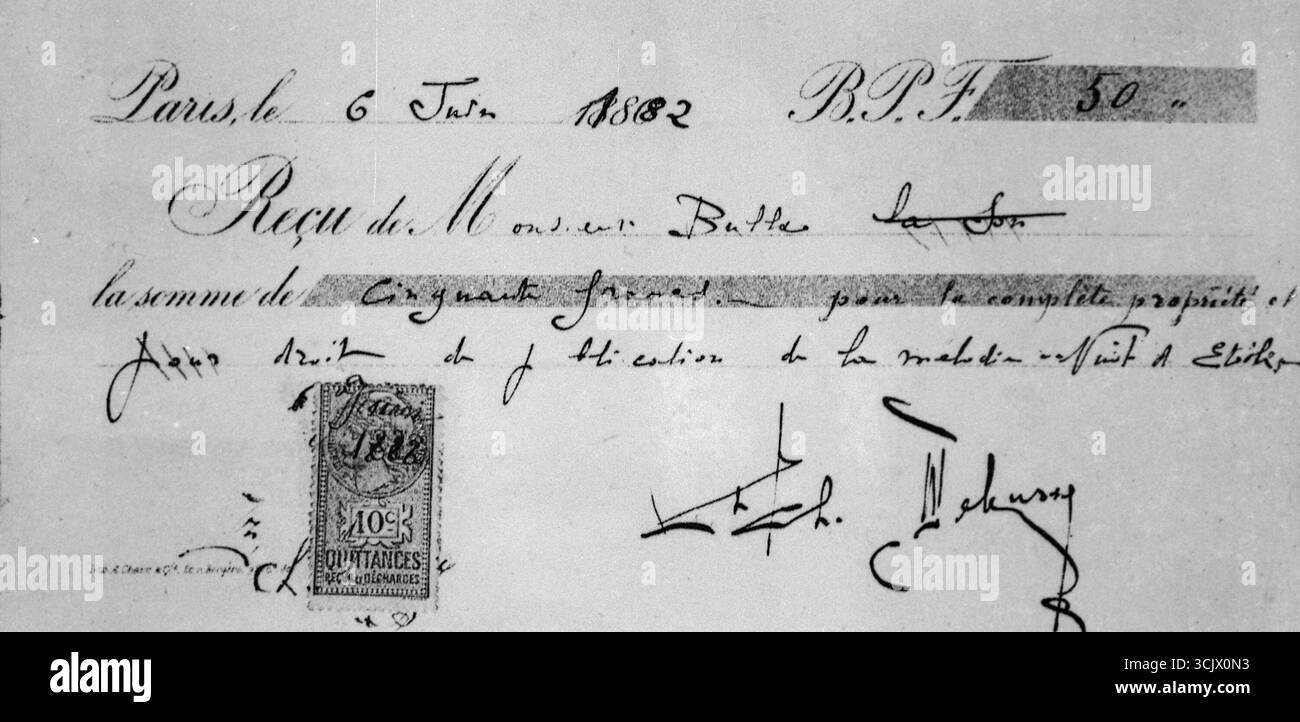 Paris, le 6 Juin 1882 B.P.F. 50 "
Reçu de Monsieur Bulla la Son
la somme de Cinquante francs pour la complète propriété et
pour droit de publication de la mélodie "Nuit d'Etoiles
1882
10c
QUITTANCES
REÇUS & DÉCHARGES
Ch. Debussy
alamy
Image ID: 2CJX0N3
www.alamy.com